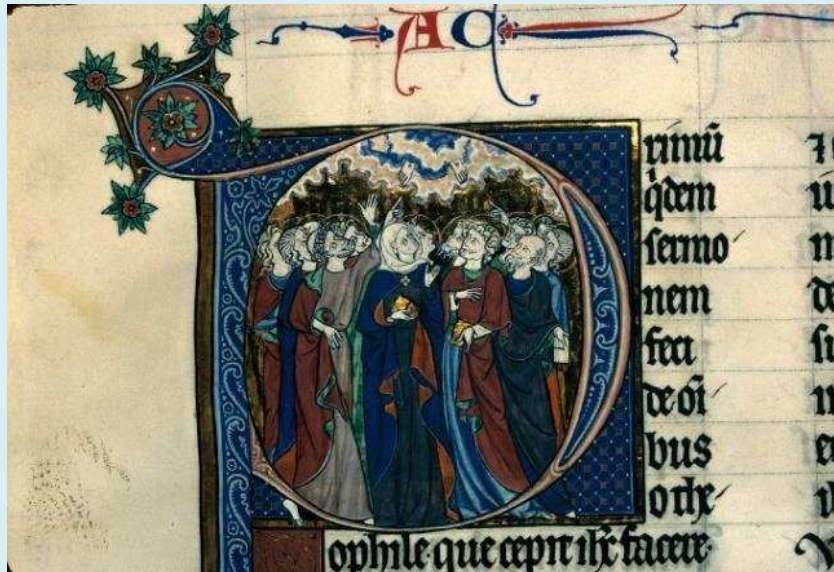 AC
rimū
q̇dem
sermo
nem
feci
de oī
bus
o the
ophile que cepit ihc̄ facere